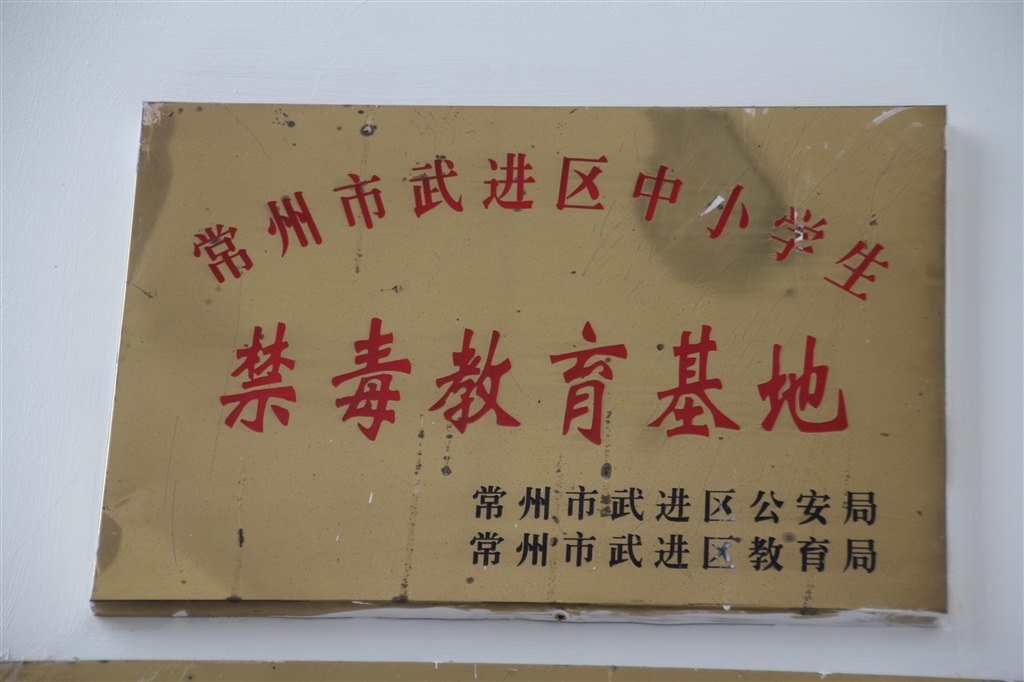 常州市武进区中小学生
禁毒教育基地
常州市武进区公安局
常州市武进区教育局